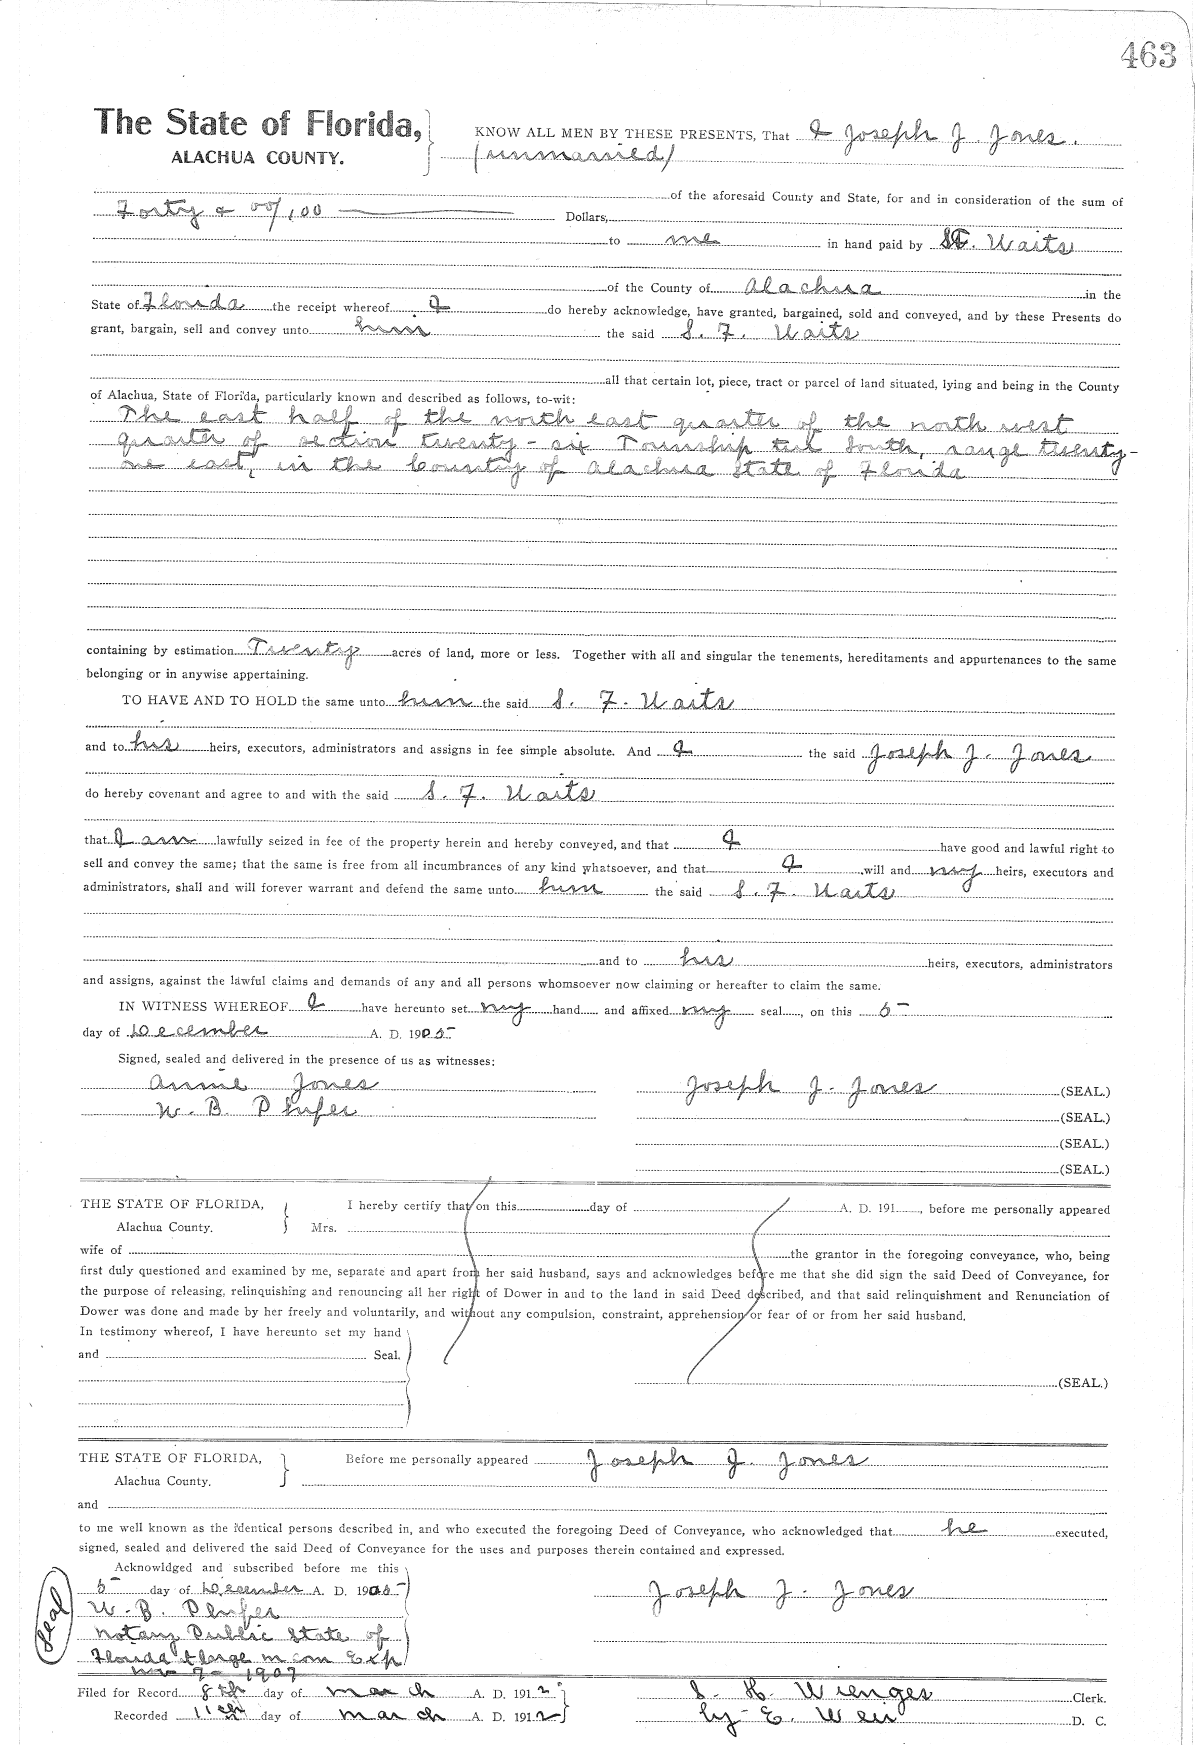 463
The State of Florida,
ALACHUA COUNTY.
KNOW ALL MEN BY THESE PRESENTS, That I Joseph J. Jones.
(unmarried)
of the aforesaid County and State, for and in consideration of the sum of
Forty & 00/100 Dollars,
to me in hand paid by S.F. Waits
of the County of Alachua in the
State of Florida the receipt whereof I do hereby acknowledge, have granted, bargained, sold and conveyed, and by these Presents do
grant, bargain, sell and convey unto him the said S. F. Waits
all that certain lot, piece, tract or parcel of land situated, lying and being in the County
of Alachua, State of Florida, particularly known and described as follows, to-wit:
The east half of the north east quarter of the north west
quarter of section twenty-six Township ten South, range twenty-
one east, in the County of Alachua State of Florida
containing by estimation Twenty acres of land, more or less. Together with all and singular the tenements, hereditaments and appurtenances to the same
belonging or in anywise appertaining.
TO HAVE AND TO HOLD the same unto him the said S. F. Waits
and to his heirs, executors, administrators and assigns in fee simple absolute. And I the said Joseph J. Jones
do hereby covenant and agree to and with the said S. F. Waits
that I am lawfully seized in fee of the property herein and hereby conveyed, and that I have good and lawful right to
sell and convey the same; that the same is free from all incumbrances of any kind whatsoever, and that I will and my heirs, executors and
administrators, shall and will forever warrant and defend the same unto him the said S. F. Waits
and to his heirs, executors, administrators
and assigns, against the lawful claims and demands of any and all persons whomsoever now claiming or hereafter to claim the same.
IN WITNESS WHEREOF I have hereunto set my hand and affixed my seal, on this 5-
day of December A. D. 1905-
Signed, sealed and delivered in the presence of us as witnesses:
Annie Jones Joseph J. Jones (SEAL.)
W. B. (SEAL.)
(SEAL.)
(SEAL.)
THE STATE OF FLORIDA,
Alachua County.
I hereby certify that on this day of A. D. 191 , before me personally appeared
Mrs.
wife of the grantor in the foregoing conveyance, who, being
first duly questioned and examined by me, separate and apart from her said husband, says and acknowledges before me that she did sign the said Deed of Conveyance, for
the purpose of releasing, relinquishing and renouncing all her right of Dower in and to the land in said Deed described, and that said relinquishment and Renunciation of
Dower was done and made by her freely and voluntarily, and without any compulsion, constraint, apprehension or fear of or from her said husband.
In testimony whereof, I have hereunto set my hand
and Seal.
(SEAL.)
THE STATE OF FLORIDA,
Alachua County.
Before me personally appeared Joseph J. Jones
and
to me well known as the identical persons described in, and who executed the foregoing Deed of Conveyance, who acknowledged that he executed,
signed, sealed and delivered the said Deed of Conveyance for the uses and purposes therein contained and expressed.
Acknowldged and subscribed before me this
5- day of December A. D. 1905-
Joseph J. Jones
Seal
W. B.
Notary Public State of
Florida at large m com Exp
Nov 9- 1907
Filed for Record 8th day of March A. D. 1912 S. H. Wienges Clerk.
Recorded 11th day of March A. D. 1912 by E. D. C.